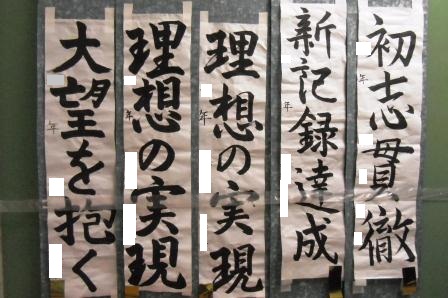 初志貫徹
年
新記録達成
年
理想の実現
年
理想の実現
年
大望を抱く
年